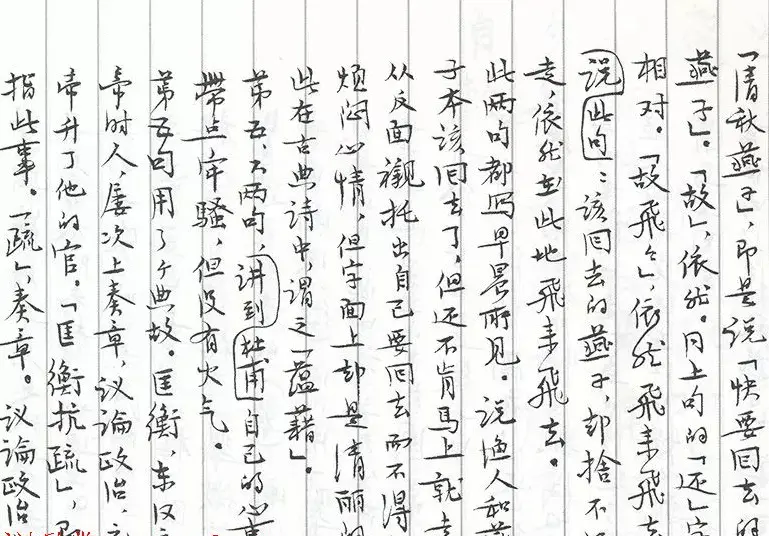 「清秋燕子」,即是说「快要回去的
燕子」。「故」,依然。同上句的「还」字
相对。「故飞々」,依然飞来飞去
说此句:该回去的燕子,却捨不
走,依然在此地飛来飛去。
此两句都写早晨所见。说渔人和燕
子本该回去了,但还不肯马上就走
从反面襯托出自己要回去而不得
烦闷心情,但字面上却是清丽的
此在古典詩中,谓之「蕴藉」。
第五、六两句,讲到杜甫自己的心事
带点牢騷,但没有火气。
第五句用了个典故。匡衡,东汉元
帝时人,屡次上奏章,议論政治,元
帝升了他的官。「匡衡抗疏」,即
指此事。「疏」,奏章。议論政治